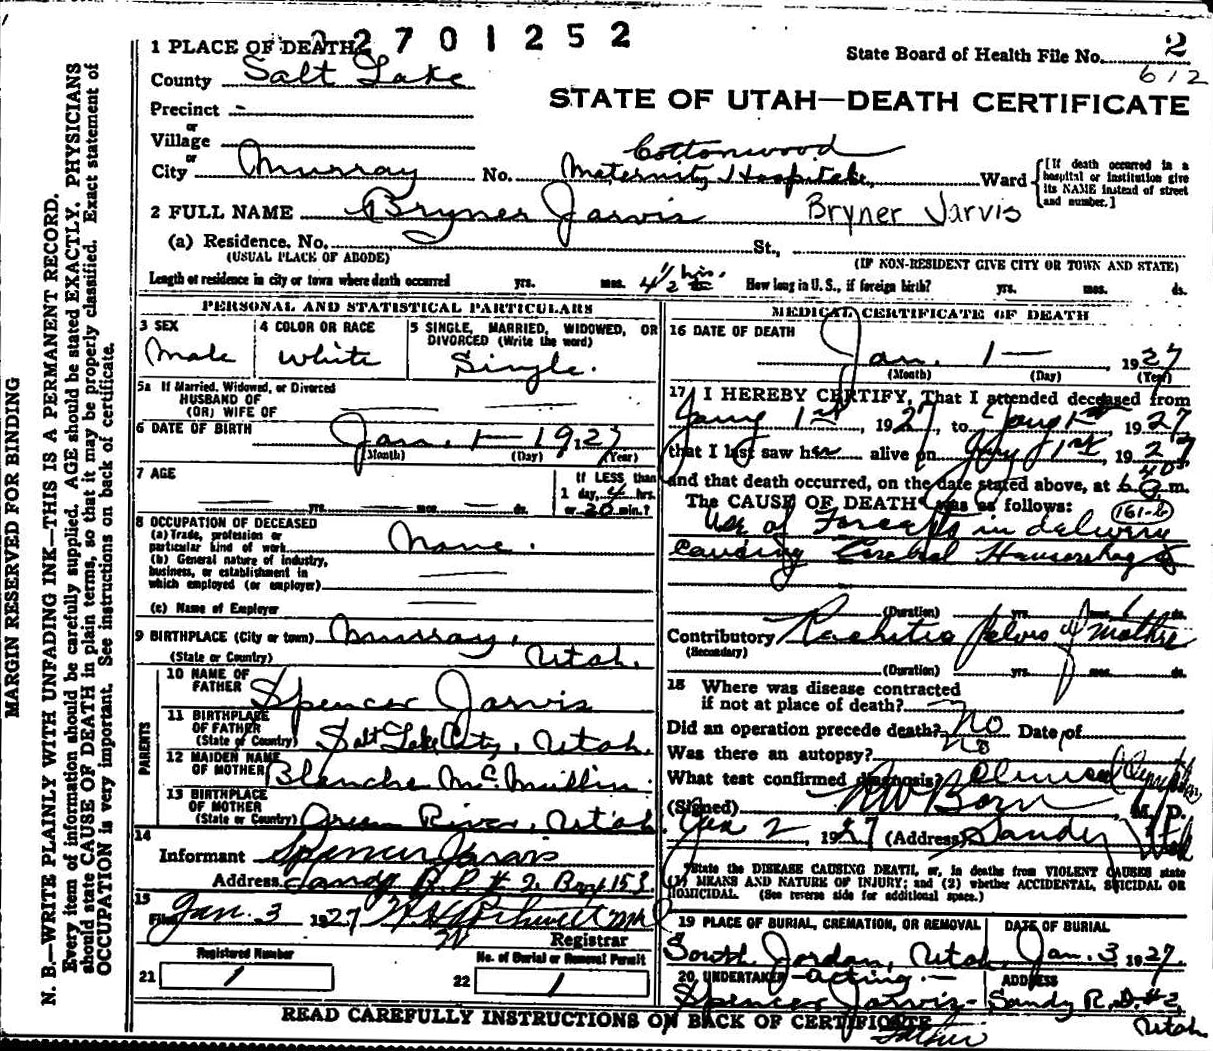 2701252
State Board of Health File No. 2
612
STATE OF UTAH—DEATH CERTIFICATE
1 PLACE OF DEATH
County Salt Lake
Precinct -
or
Village
or
City Murray No. Cottonwood Maternity Hospital, Ward
[If death occurred in a hospital or institution give its NAME instead of street and number.]
2 FULL NAME Bryner Jarvis Bryner Jarvis
(a) Residence. No. St.,
(USUAL PLACE OF ABODE) (IF NON-RESIDENT GIVE CITY OR TOWN AND STATE)
Length of residence in city or town where death occurred yrs. mos. 4 1/2 hrs. How long in U. S., if foreign birth? yrs. mos. ds.
PERSONAL AND STATISTICAL PARTICULARS
3 SEX
Male
4 COLOR OR RACE
White
5 SINGLE, MARRIED, WIDOWED, OR DIVORCED (Write the word)
Single.
5a If Married, Widowed, or Divorced
HUSBAND OF
(OR) WIFE OF
6 DATE OF BIRTH Jan. 1 — 1927
(Month) (Day) (Year)
7 AGE
yrs. mos. ds.
If LESS than
1 day, 4 hrs.
or 20 min.?
8 OCCUPATION OF DECEASED
(a) Trade, profession or
particular kind of work None.
(b) General nature of industry,
business, or establishment in
which employed (or employer)
(c) Name of Employer
9 BIRTHPLACE (City or town) Murray,
(State or Country) Utah.
PARENTS
10 NAME OF
FATHER Spencer Jarvis
11 BIRTHPLACE
OF FATHER
(State or Country) Salt Lake City, Utah.
12 MAIDEN NAME
OF MOTHER Blanche McMullin
13 BIRTHPLACE
OF MOTHER
(State or Country) Green River, Utah
14
Informant Spencer Jarvis
Address Sandy R.D. # 2, Box 153.
15
Filed Jan. 3 1927
Registrar
Registered Number
21 1
No. of Burial or Removal Permit
22 1
MEDICAL CERTIFICATE OF DEATH
16 DATE OF DEATH
Jan. 1 — 1927
(Month) (Day) (Year)
17 I HEREBY CERTIFY, That I attended deceased from
Jany 1st, 1927, to Jany 1st 1927
that I last saw him alive on Jany 1st, 1927
and that death occurred, on the date stated above, at 6 40 a m.
The CAUSE OF DEATH was as follows: 161-b
Use of Forceps in delivery
causing Cerebral Haemorrhage
(Duration) yrs. mos. 1 ds.
Contributory Rachitic pelvis of Mother
(Secondary)
(Duration) yrs. mos. ds.
18 Where was disease contracted
if not at place of death?
Did an operation precede death? No Date of
Was there an autopsy? No
What test confirmed diagnosis? Clinical Symptoms
(Signed) M. D.
Jan 2 1927 (Address) Sandy Utah
*State the DISEASE CAUSING DEATH, or, in deaths from VIOLENT CAUSES state
(1) MEANS AND NATURE OF INJURY; and (2) whether ACCIDENTAL, SUICIDAL OR
HOMICIDAL. (See reverse side for additional space.)
19 PLACE OF BURIAL, CREMATION, OR REMOVAL
South Jordan, Utah
DATE OF BURIAL
Jan. 3 1927.
20 UNDERTAKER - acting -
Spencer Jarvis -
Father
ADDRESS
Sandy R.D. #2,
Utah
READ CAREFULLY INSTRUCTIONS ON BACK OF CERTIFICATE
MARGIN RESERVED FOR BINDING
N. B.—WRITE PLAINLY WITH UNFADING INK—THIS IS A PERMANENT RECORD.
Every item of information should be carefully supplied. AGE should be stated EXACTLY. PHYSICIANS
should state CAUSE OF DEATH in plain terms, so that it may be properly classified. Exact statement of
OCCUPATION is very important. See instructions on back of certificate.